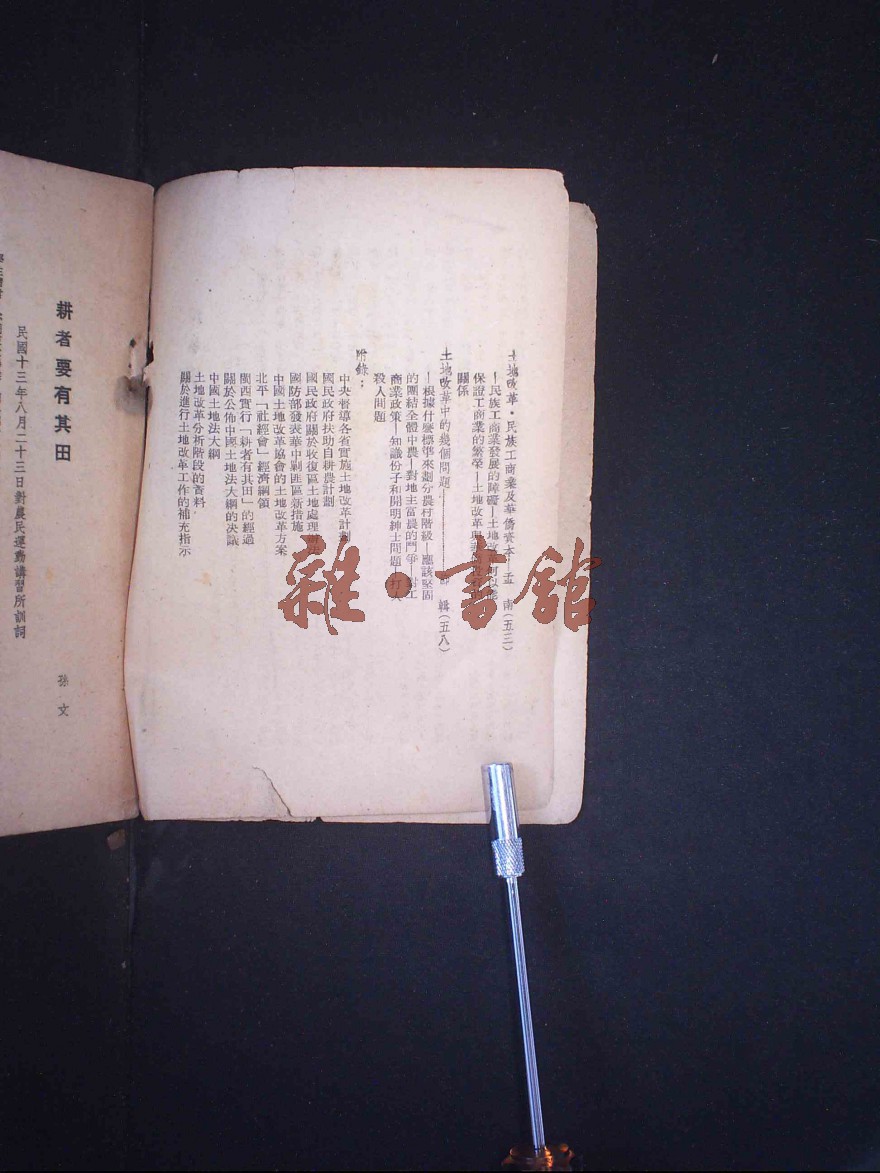 土地改革·民族工商業及華僑資本—孟 南(五三)
—民族工商業發展的障礙—土地改
保證工商業的繁榮—土地改革
關係
土地改革中的幾個問題 輯(五八)
—根據什麼標準來劃分農村階級—應該堅固
的團結全體中農—對地主富農的鬥爭—對工
商業政策—知識份子和開明紳士問題—打人
殺人問題
附錄：
中央督導各省實施土地改革計劃
國民政府扶助自耕農計劃
國民政府關於收復區土地處理
國防部發表華中剿匪區新措施
中國土地改革協會的土地改革方案
北平「社經會」經濟綱領
閩西實行「耕者有其田」的經過
關於公佈中國土地法大綱的決議
中國土地法大綱
土地改革分析階段的資料
關於進行土地改革工作的補充指示
耕者要有其田
孫文
民國十三年八月二十三日對農民運動講習所訓詞
雜·書館